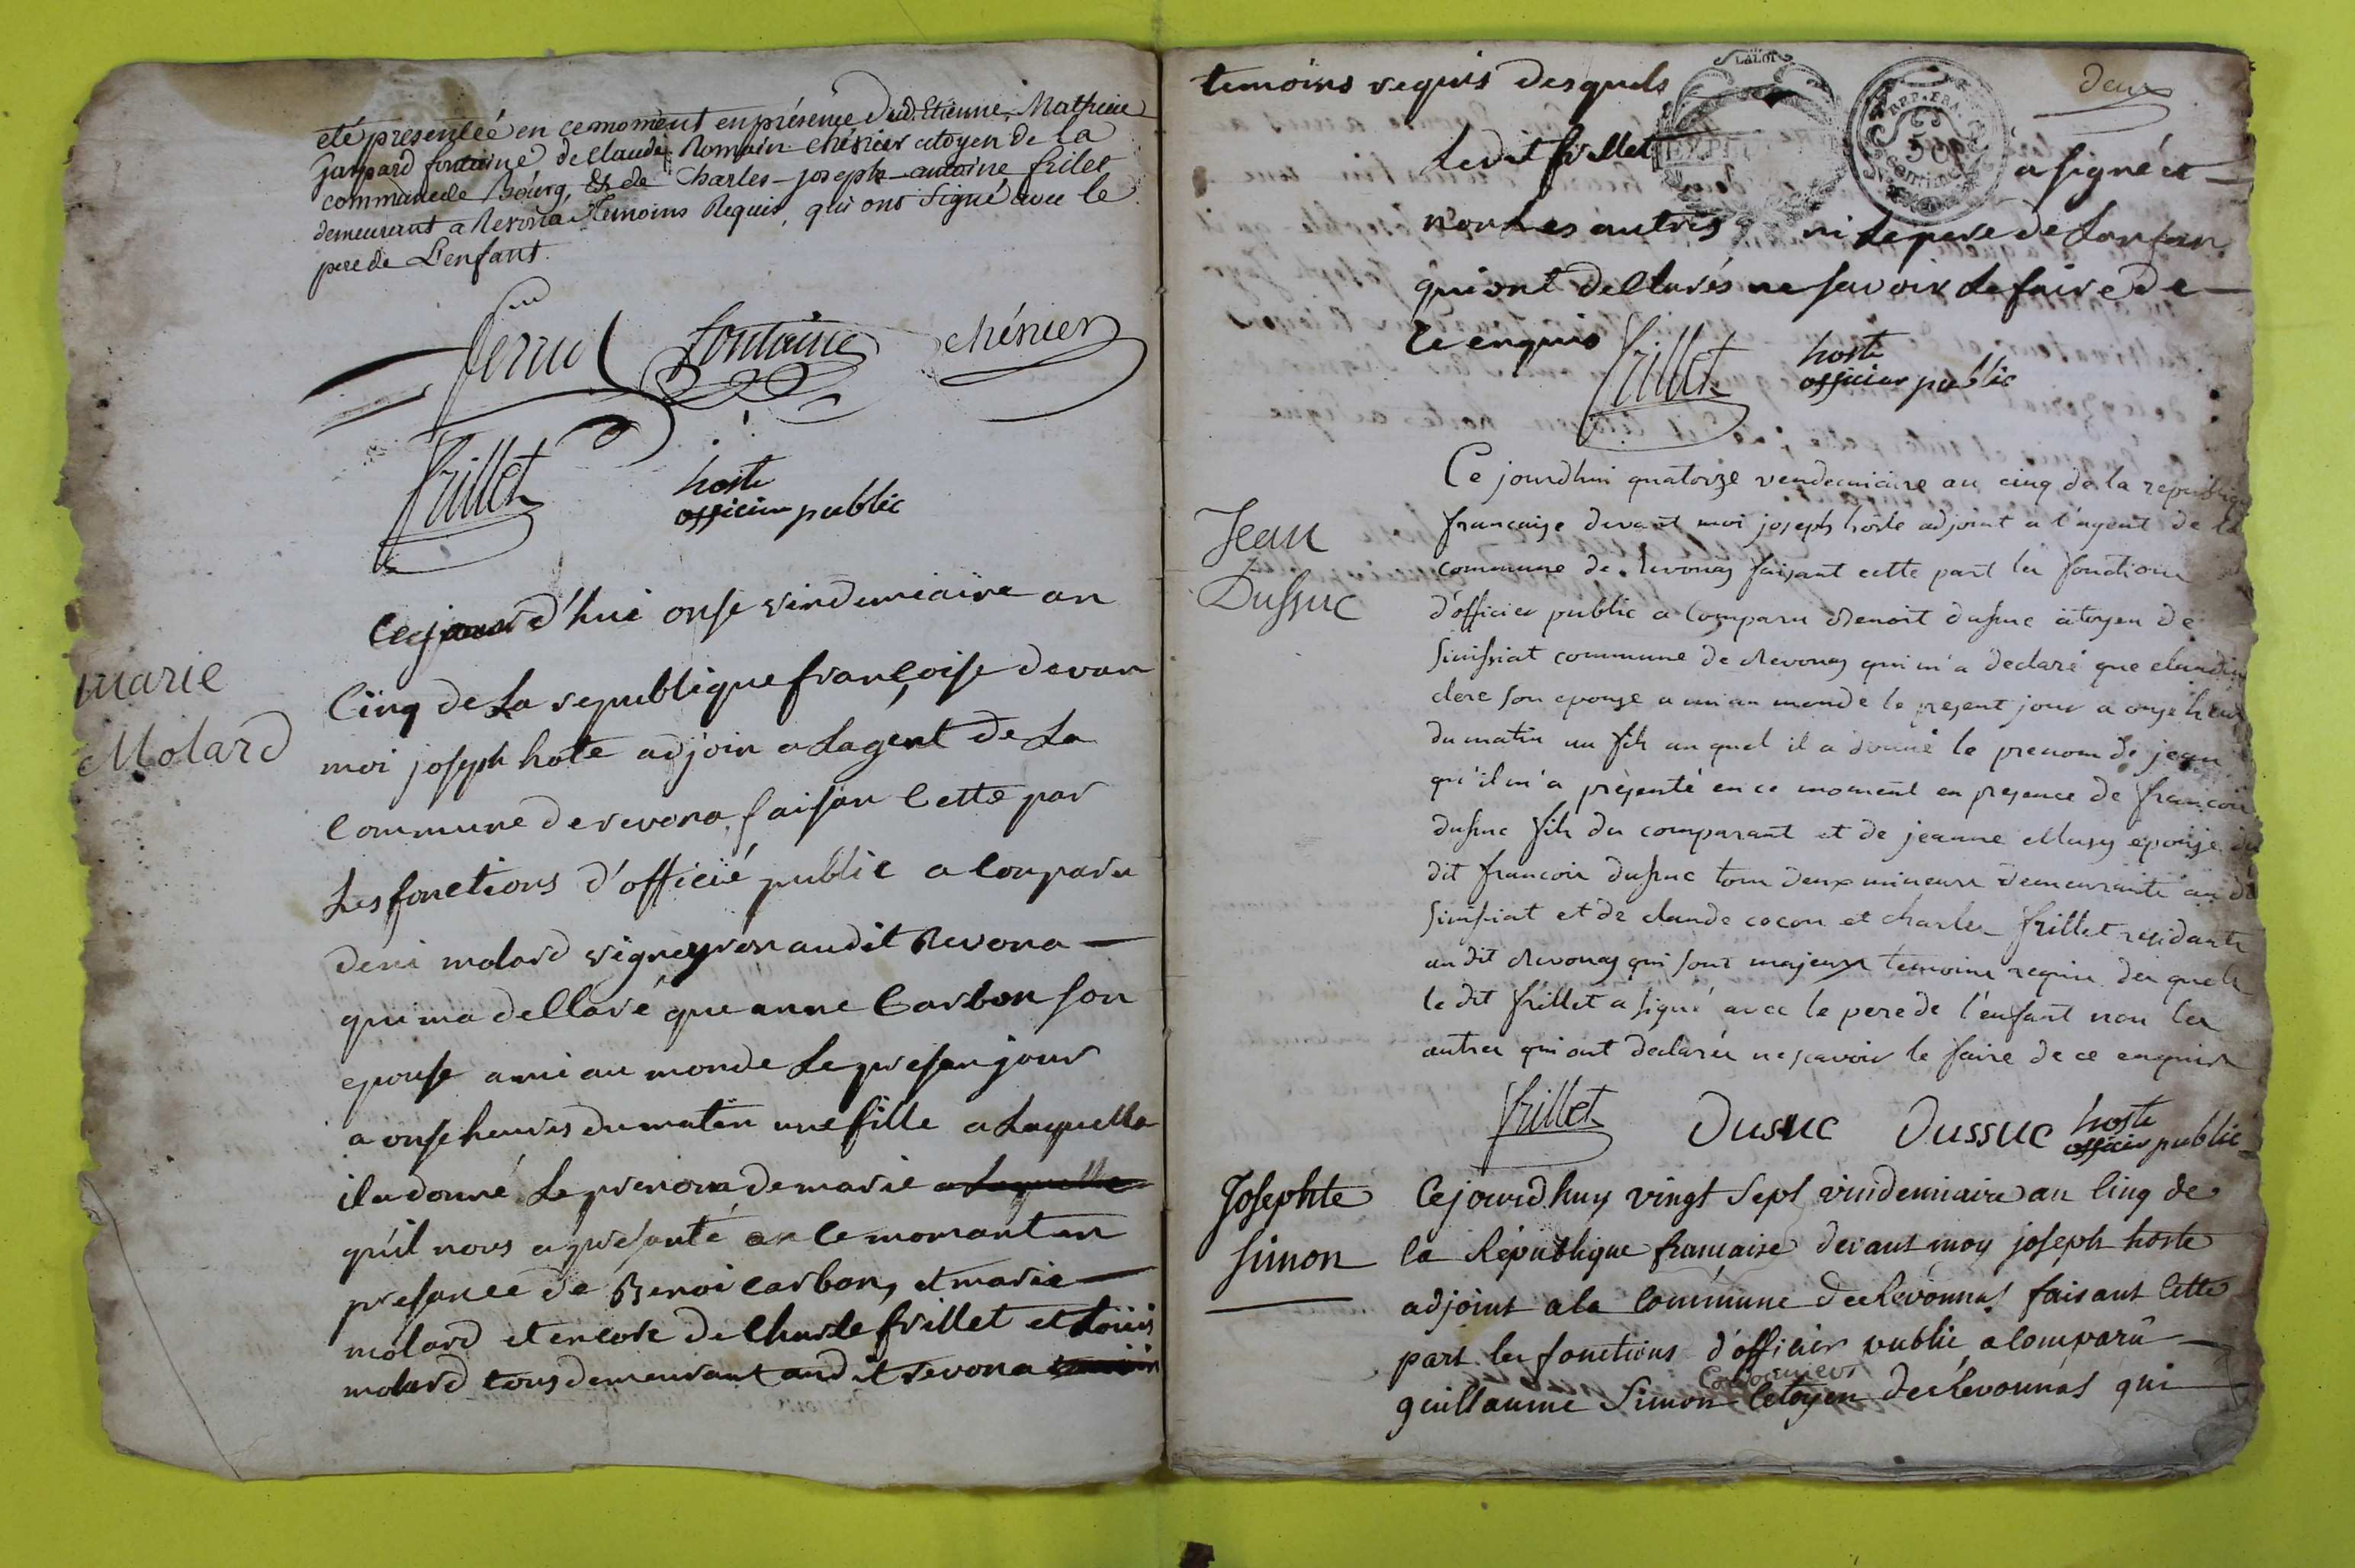 eté présentée en ce moment en présence dud. Etienne, Mathieu
Gaspard fontaine de Claude, Romain chésrier citoyen de la
commune de Bourg, Et de Charles-joseph-antoine frillet
demeurant a Revona, Temoins Requis, qui ont Signé avec le
pere de L'enfant.
fontaine chésrier
frillet hoste
officier public
marie
Molard
Ce jourd'hui onse vindemiaire an
Cinq de La republique françoise devan
moi joseph hote adjoin a Lagent de La
Commune de revona, faisan Cette par
Les fonctions d'officié public a Conparu
deni molard vigneyron audit Revona
qui ma dellaré que anne Carbon son
epouse a mi au monde Le presan jour
a onse heures du matin une fille a Laquelle
il a donné Le prenom de marie a Laquelle
qu'il nous a presanté an ce momant en
presance de Benoi Carbon, et marie
molard et encore de Charle frillet et Louis
molard tous demeurant audit revona
temoins requis desquels
deux
LA LOI
REP. FRA.
50
Centimes
Ledit frillet a signé et
non Les autres ni Le pere de Lanfan
qui ont dellarés ne savoir Le faire de
Ce enquis
frillet hoste
officier public
Jean
Dussuc
Ce jourdhui quatorze vendemiaire an cinq de la republique
francaise devant moi joseph hoste adjoint a l'agent de la
commune de Revonas faisant cette part les fonctions
d'officier public a comparu Benoit dussuc citoyen de
Simssiat commune de Revonas qui m'a declaré que claudine
clerc son epouze a mi au monde le present jour a onze heures
du matin un fils auquel il a donné le prenom de jean
qu'il m'a présenté en ce moment en presence de francois
dussuc fils du comparant et de jeanne Musy epouse du
dit francois dussuc tous deux mineurs demeurants au dit
Simssiat et de claude cocon et charles frillet residants
au dit Revonas qui sont majeurs temoins requis des quels
le dit frillet a signé avec le pere de l'enfant non les
autres qui ont declarés ne scavoir le faire de ce enquis
frillet Dusuc Dussuc hoste
officier public
Josephte
Simon
Ce jourd'huy vingt sept vindemiaire an Cinq de
la République francaise devant moy joseph hoste
adjoint a la Commune de Revonnas faisant Cette
part les fonctions d'officier public a Comparu
Cordonnier
guillaume Simon Citoyen de Revonnas qui